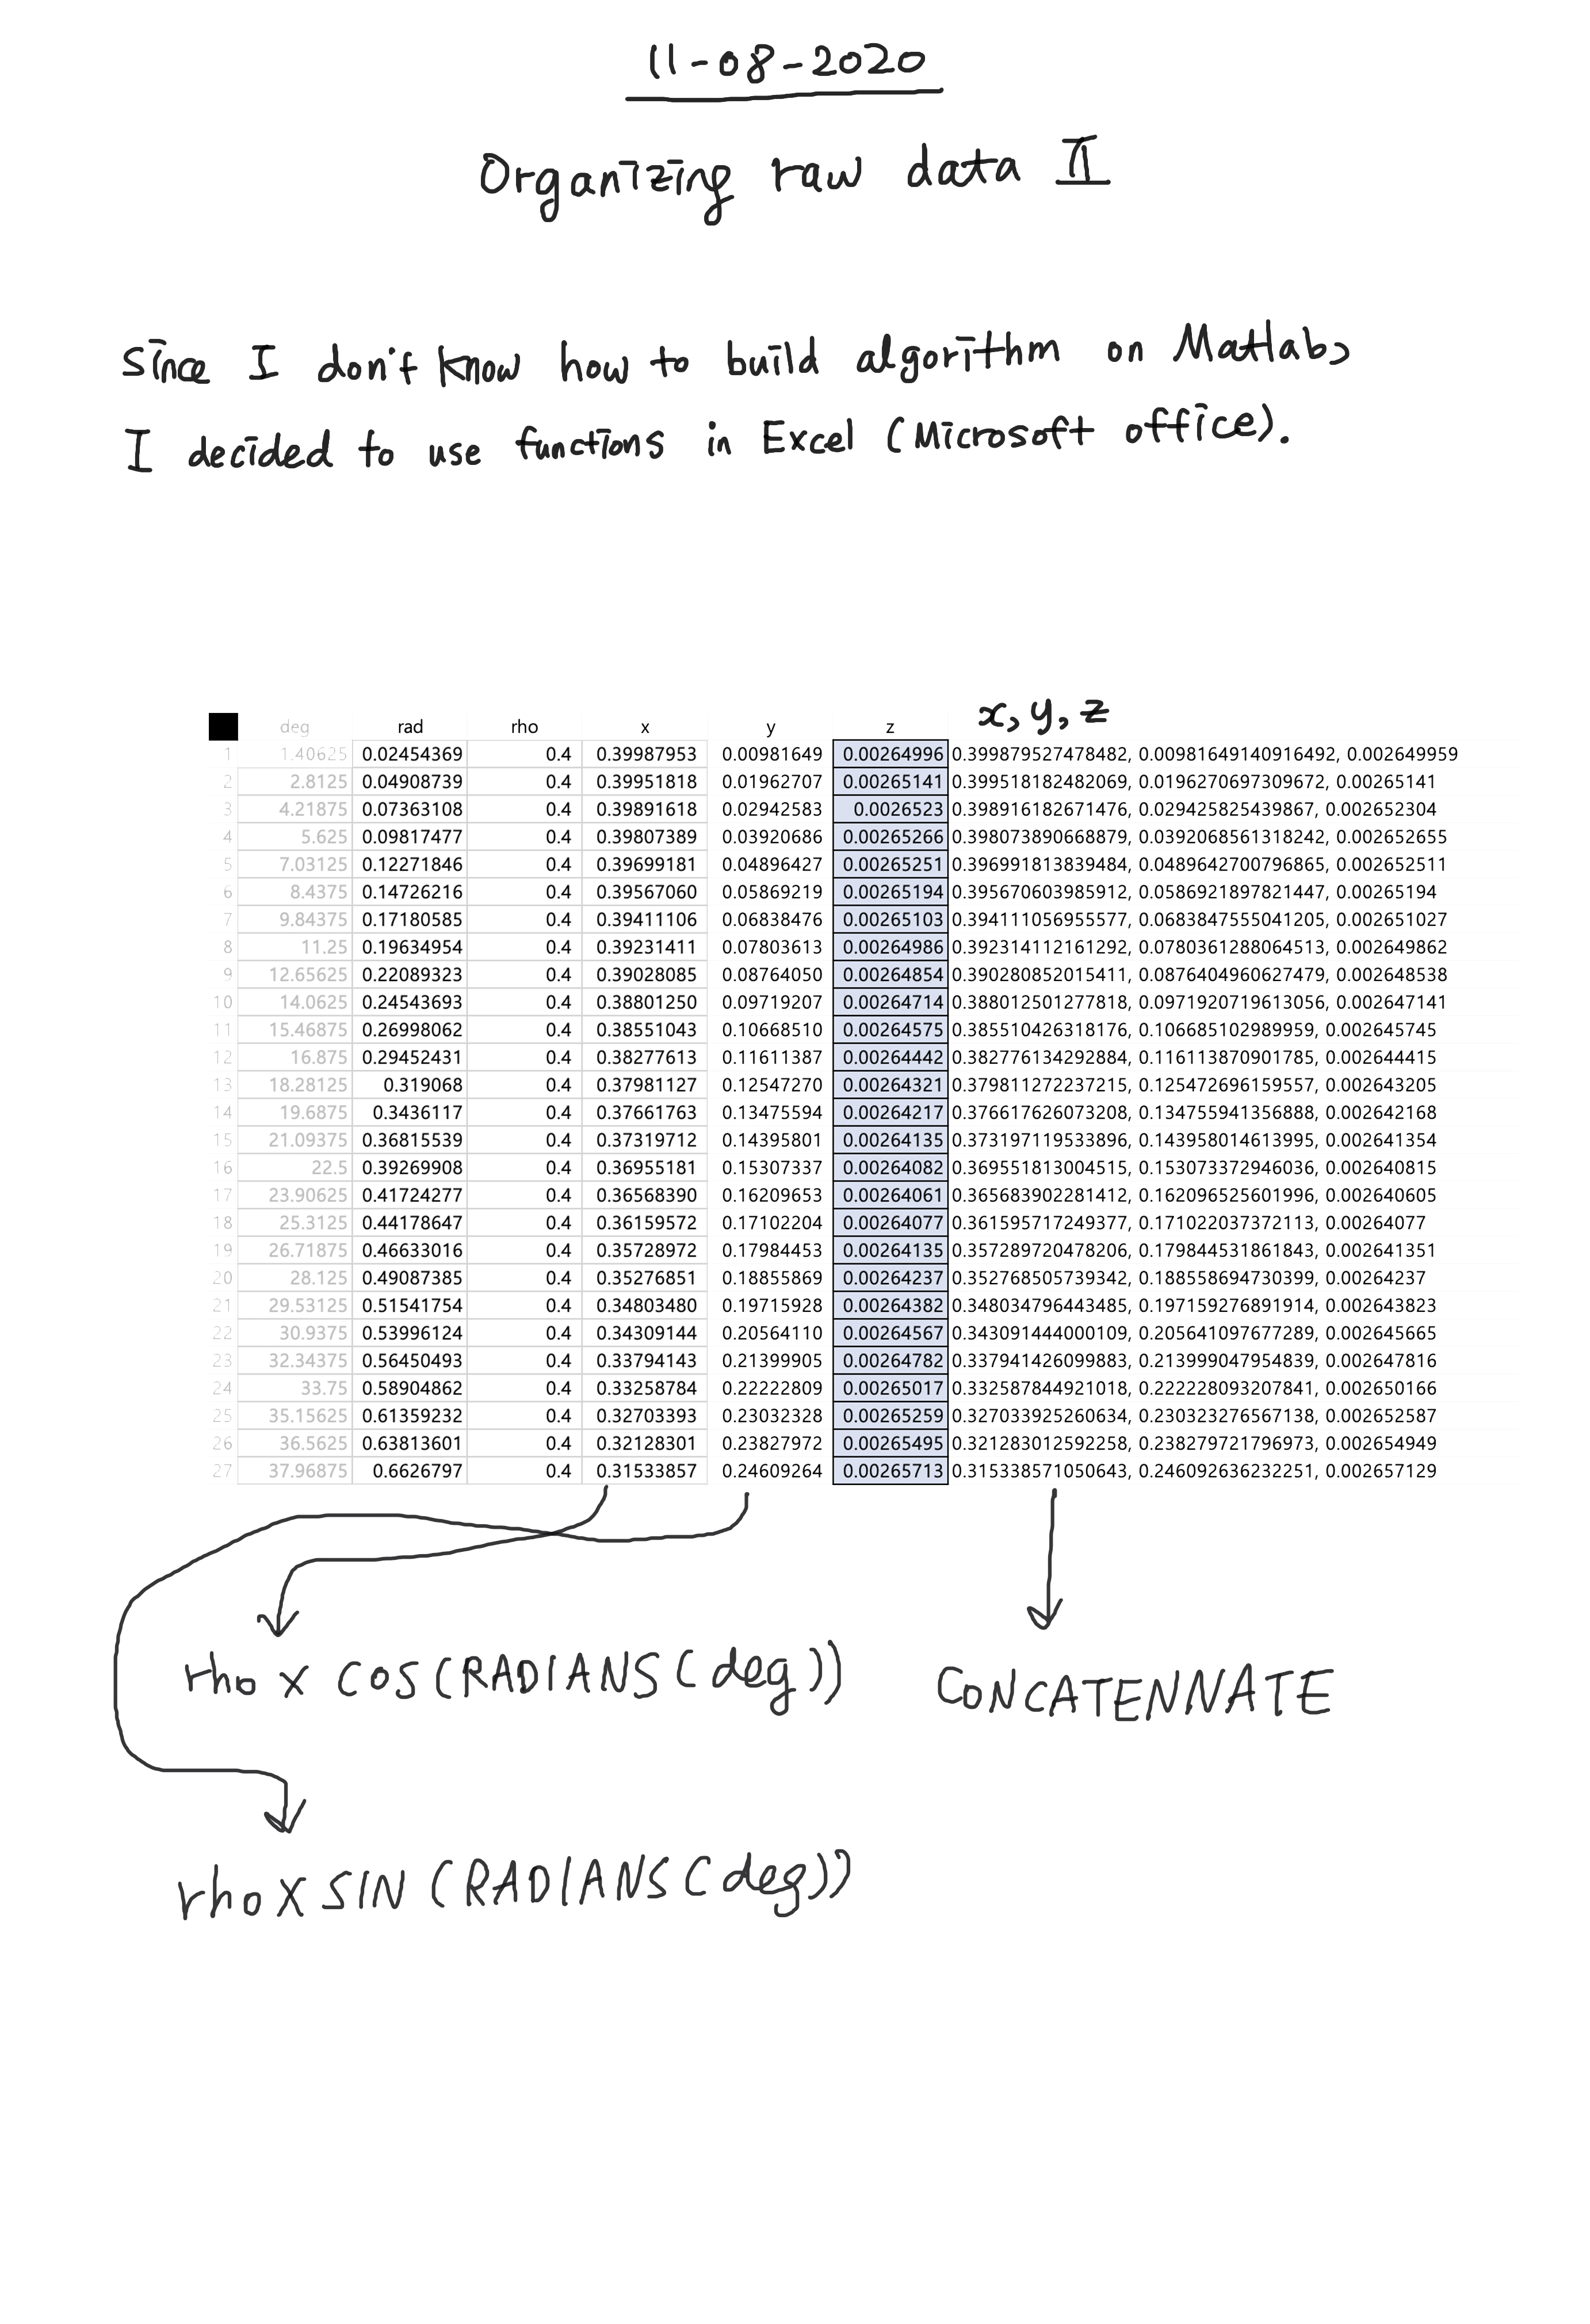 11-08-2020
Organizing raw data II
Since I don't know how to build algorithm on Matlab,
I decided to use functions in Excel (Microsoft office).
x, y, z
deg rad rho x y z
1 1.40625 0.02454369 0.4 0.39987953 0.00981649 0.00264996 0.399879527478482, 0.00981649140916492, 0.002649959
2 2.8125 0.04908739 0.4 0.39951818 0.01962707 0.00265141 0.399518182482069, 0.0196270697309672, 0.00265141
3 4.21875 0.07363108 0.4 0.39891618 0.02942583 0.0026523 0.398916182671476, 0.029425825439867, 0.002652304
4 5.625 0.09817477 0.4 0.39807389 0.03920686 0.00265266 0.398073890668879, 0.0392068561318242, 0.002652655
5 7.03125 0.12271846 0.4 0.39699181 0.04896427 0.00265251 0.396991813839484, 0.0489642700796865, 0.002652511
6 8.4375 0.14726216 0.4 0.39567060 0.05869219 0.00265194 0.395670603985912, 0.0586921897821447, 0.00265194
7 9.84375 0.17180585 0.4 0.39411106 0.06838476 0.00265103 0.394111056955577, 0.0683847555041205, 0.002651027
8 11.25 0.19634954 0.4 0.39231411 0.07803613 0.00264986 0.392314112161292, 0.0780361288064513, 0.002649862
9 12.65625 0.22089323 0.4 0.39028085 0.08764050 0.00264854 0.390280852015411, 0.0876404960627479, 0.002648538
10 14.0625 0.24543693 0.4 0.38801250 0.09719207 0.00264714 0.388012501277818, 0.0971920719613056, 0.002647141
11 15.46875 0.26998062 0.4 0.38551043 0.10668510 0.00264575 0.385510426318176, 0.106685102989959, 0.002645745
12 16.875 0.29452431 0.4 0.38277613 0.11611387 0.00264442 0.382776134292884, 0.116113870901785, 0.002644415
13 18.28125 0.319068 0.4 0.37981127 0.12547270 0.00264321 0.379811272237215, 0.125472696159557, 0.002643205
14 19.6875 0.3436117 0.4 0.37661763 0.13475594 0.00264217 0.376617626073208, 0.134755941356888, 0.002642168
15 21.09375 0.36815539 0.4 0.37319712 0.14395801 0.00264135 0.373197119533896, 0.143958014613995, 0.002641354
16 22.5 0.39269908 0.4 0.36955181 0.15307337 0.00264082 0.369551813004515, 0.153073372946036, 0.002640815
17 23.90625 0.41724277 0.4 0.36568390 0.16209653 0.00264061 0.365683902281412, 0.162096525601996, 0.002640605
18 25.3125 0.44178647 0.4 0.36159572 0.17102204 0.00264077 0.361595717249377, 0.171022037372113, 0.00264077
19 26.71875 0.46633016 0.4 0.35728972 0.17984453 0.00264135 0.357289720478206, 0.179844531861843, 0.002641351
20 28.125 0.49087385 0.4 0.35276851 0.18855869 0.00264237 0.352768505739342, 0.188558694730399, 0.00264237
21 29.53125 0.51541754 0.4 0.34803480 0.19715928 0.00264382 0.348034796443485, 0.197159276891914, 0.002643823
22 30.9375 0.53996124 0.4 0.34309144 0.20564110 0.00264567 0.343091444000109, 0.205641097677289, 0.002645665
23 32.34375 0.56450493 0.4 0.33794143 0.21399905 0.00264782 0.337941426099883, 0.213999047954839, 0.002647816
24 33.75 0.58904862 0.4 0.33258784 0.22222809 0.00265017 0.332587844921018, 0.222228093207841, 0.002650166
25 35.15625 0.61359232 0.4 0.32703393 0.23032328 0.00265259 0.327033925260634, 0.230323276567138, 0.002652587
26 36.5625 0.63813601 0.4 0.32128301 0.23827972 0.00265495 0.321283012592258, 0.238279721796973, 0.002654949
27 37.96875 0.6626797 0.4 0.31533857 0.24609264 0.00265713 0.315338571050643, 0.246092636232251, 0.002657129
rho x COS(RADIANS(deg)) CONCATENNATE
rho x SIN(RADIANS(deg))